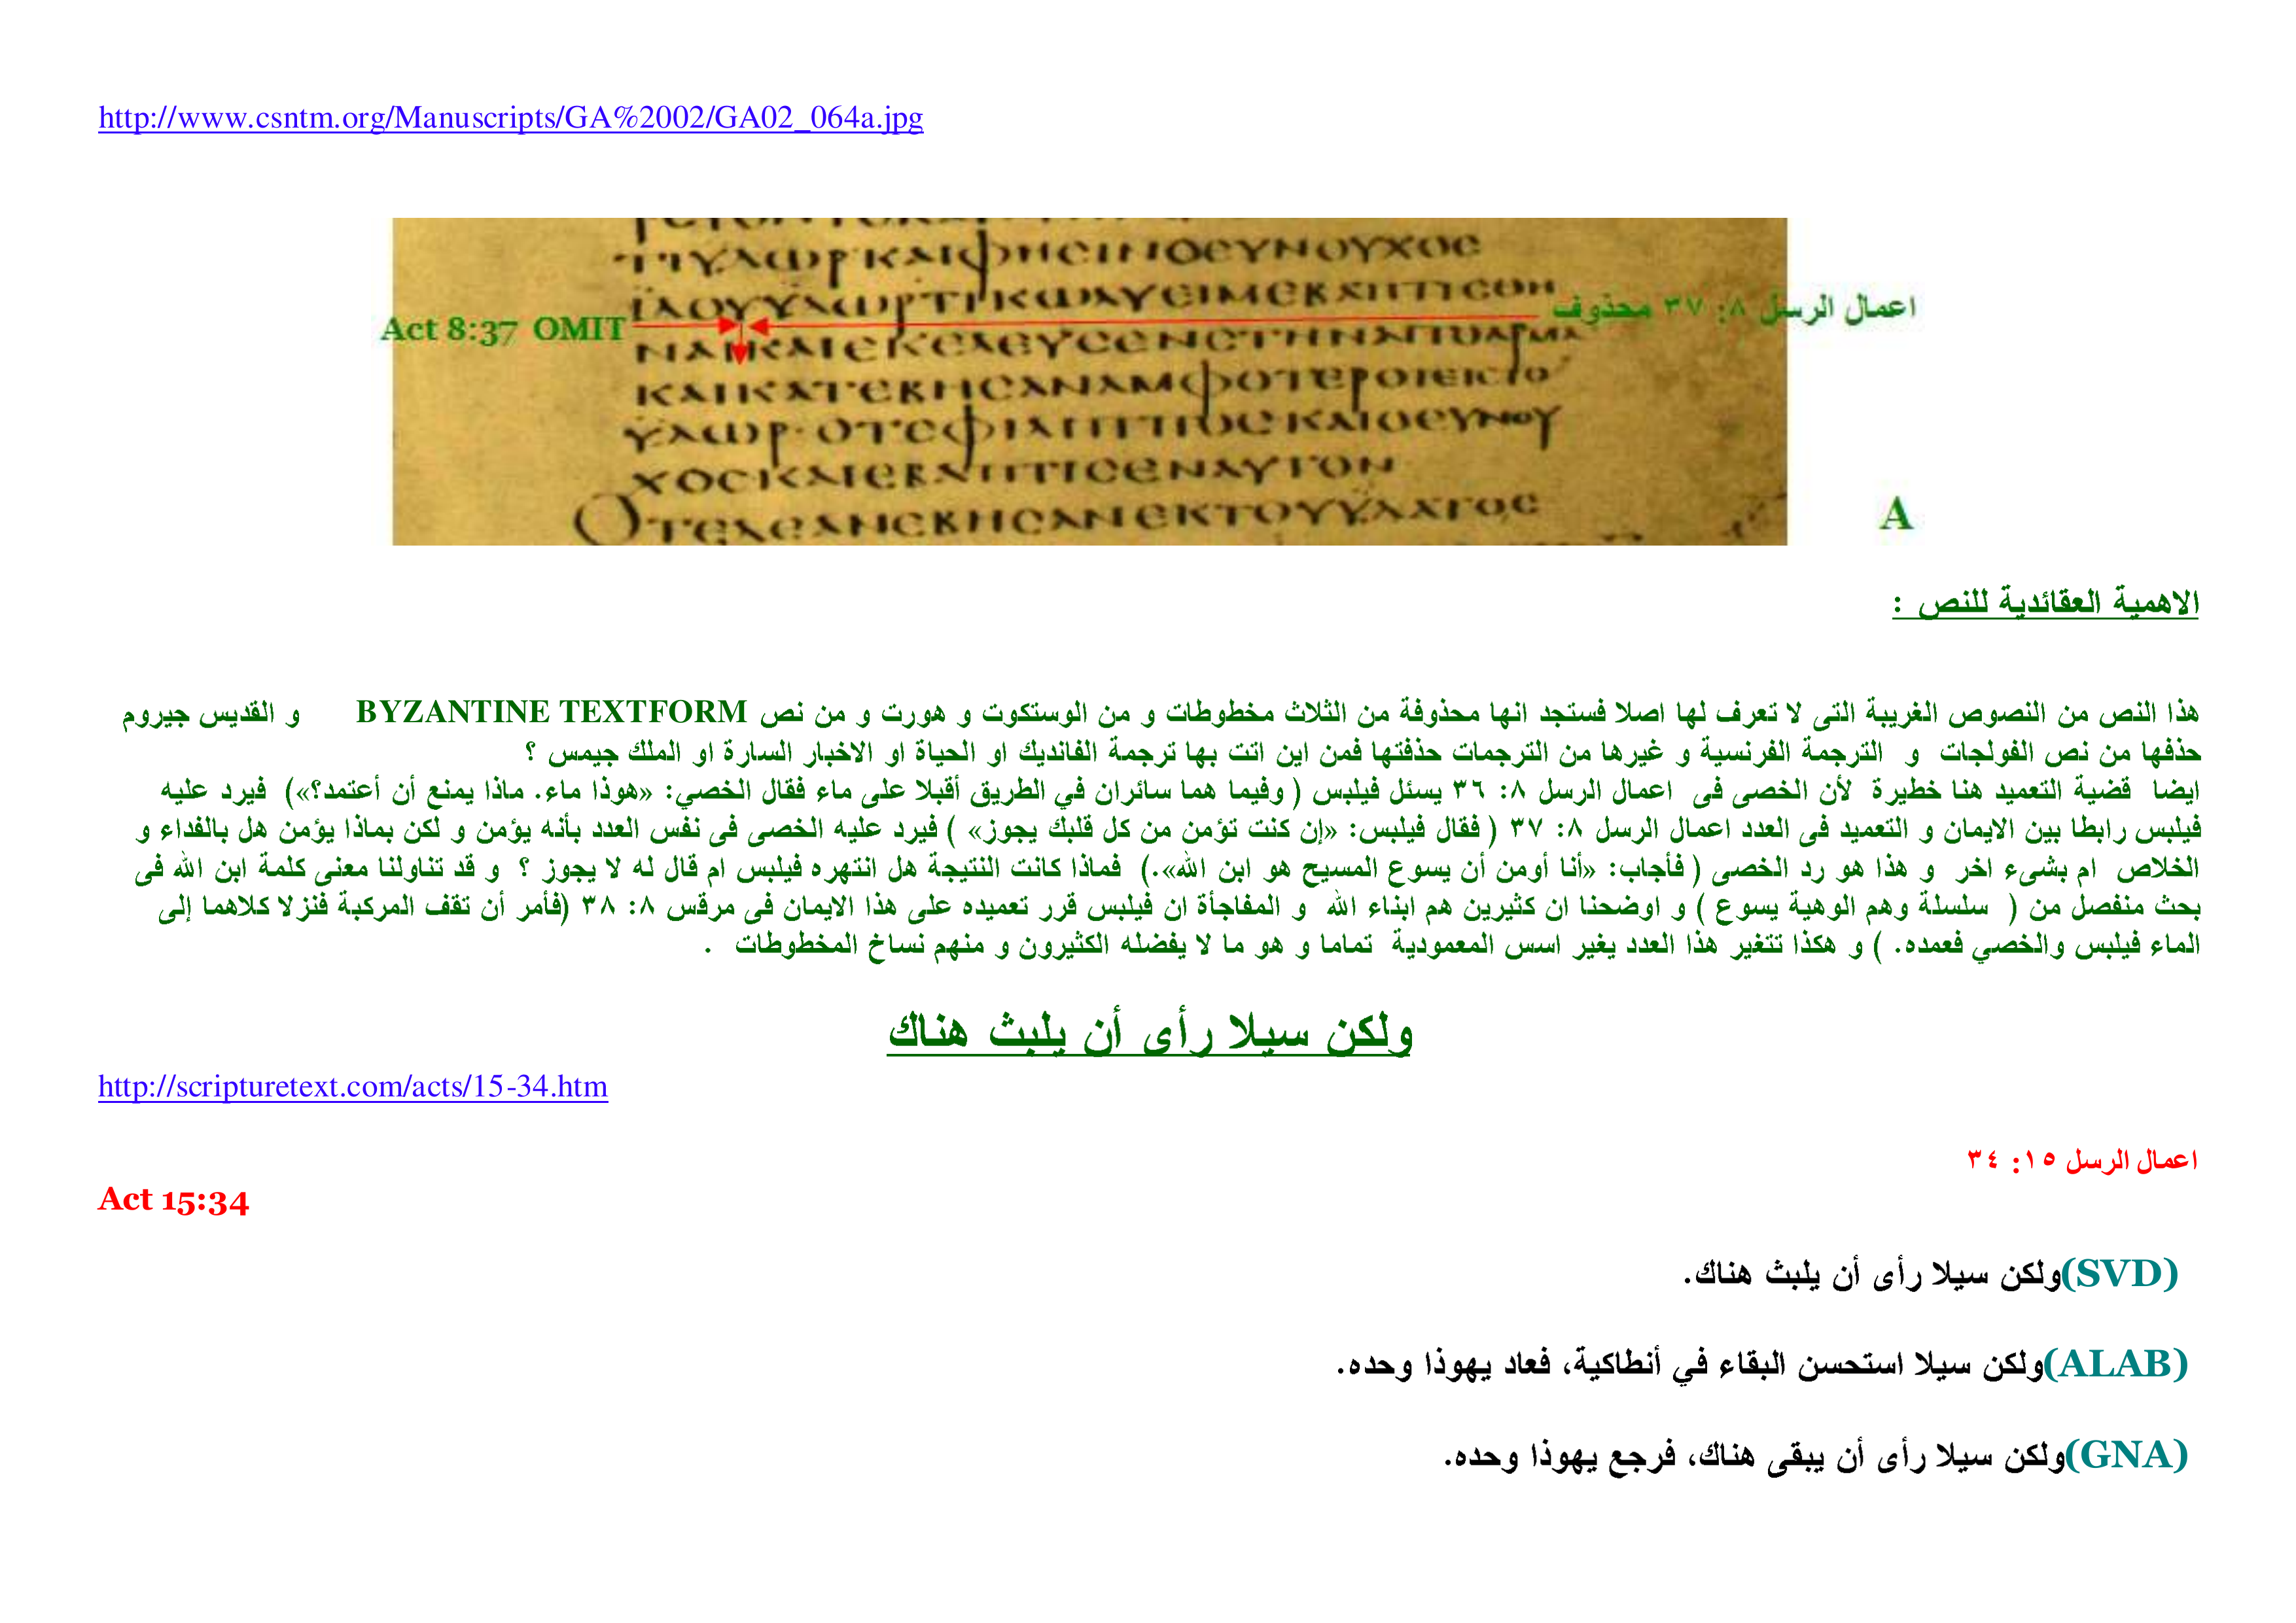 http://www.csntm.org/Manuscripts/GA%2002/GA02_064a.jpg
ΚΑΙΦΗCΙΝΟΕΥΝΟΥΧΟC
Act 8:37 OMIT
اعمال الرسل ٨: ٣٧ محذوف
ΚΑΙΚΑΤΕΒΗCΑΝΑΜΦΟΤΕΡΟΙΕΙCΤΟ
ΥΔΩΡ·ΟΤΕΦΙΛΙΠΠΟCΚΑΙΟΕΥΝΟΥ
ΧΟCΚΑΙΕΒΑΠΤΙCΕΝΑΥΤΟΝ
A
الاهمية العقائدية للنص :
هذا النص من النصوص الغريبة التى لا تعرف لها اصلا فستجد انها محذوفة من الثلاث مخطوطات و من الوستكوت و هورت و من نص BYZANTINE TEXTFORM و القديس جيروم
حذفها من نص الفولجات و الترجمة الفرنسية و غيرها من الترجمات حذفتها فمن اين اتت بها ترجمة الفانديك او الحياة او الاخبار السارة او الملك جيمس ؟
ايضا قضية التعميد هنا خطيرة لأن الخصى فى اعمال الرسل ٨: ٣٦ يسئل فيلبس ( وفيما هما سائران في الطريق أقبلا على ماء فقال الخصي: «هوذا ماء. ماذا يمنع أن أعتمد؟») فيرد عليه
فيلبس رابطا بين الايمان و التعميد فى العدد اعمال الرسل ٨: ٣٧ ( فقال فيلبس: «إن كنت تؤمن من كل قلبك يجوز» ) فيرد عليه الخصى فى نفس العدد بأنه يؤمن و لكن بماذا يؤمن هل بالفداء و
الخلاص ام بشىء اخر و هذا هو رد الخصى ( فأجاب: «أنا أومن أن يسوع المسيح هو ابن الله».) فماذا كانت النتيجة هل انتهره فيلبس ام قال له لا يجوز ؟ و قد تناولنا معنى كلمة ابن الله فى
بحث منفصل من ( سلسلة وهم الوهية يسوع ) و اوضحنا ان كثيرين هم ابناء الله و المفاجأة ان فيلبس قرر تعميده على هذا الايمان فى مرقس ٨: ٣٨ (فأمر أن تقف المركبة فنزلا كلاهما إلى
الماء فيلبس والخصي فعمده. ) و هكذا تتغير هذا العدد يغير اسس المعمودية تماما و هو ما لا يفضله الكثيرون و منهم نساخ المخطوطات .
ولكن سيلا رأى أن يلبث هناك
http://scripturetext.com/acts/15-34.htm
اعمال الرسل ١٥: ٣٤
Act 15:34
(SVD)ولكن سيلا رأى أن يلبث هناك.
(ALAB)ولكن سيلا استحسن البقاء في أنطاكية، فعاد يهوذا وحده.
(GNA)ولكن سيلا رأى أن يبقى هناك، فرجع يهوذا وحده.